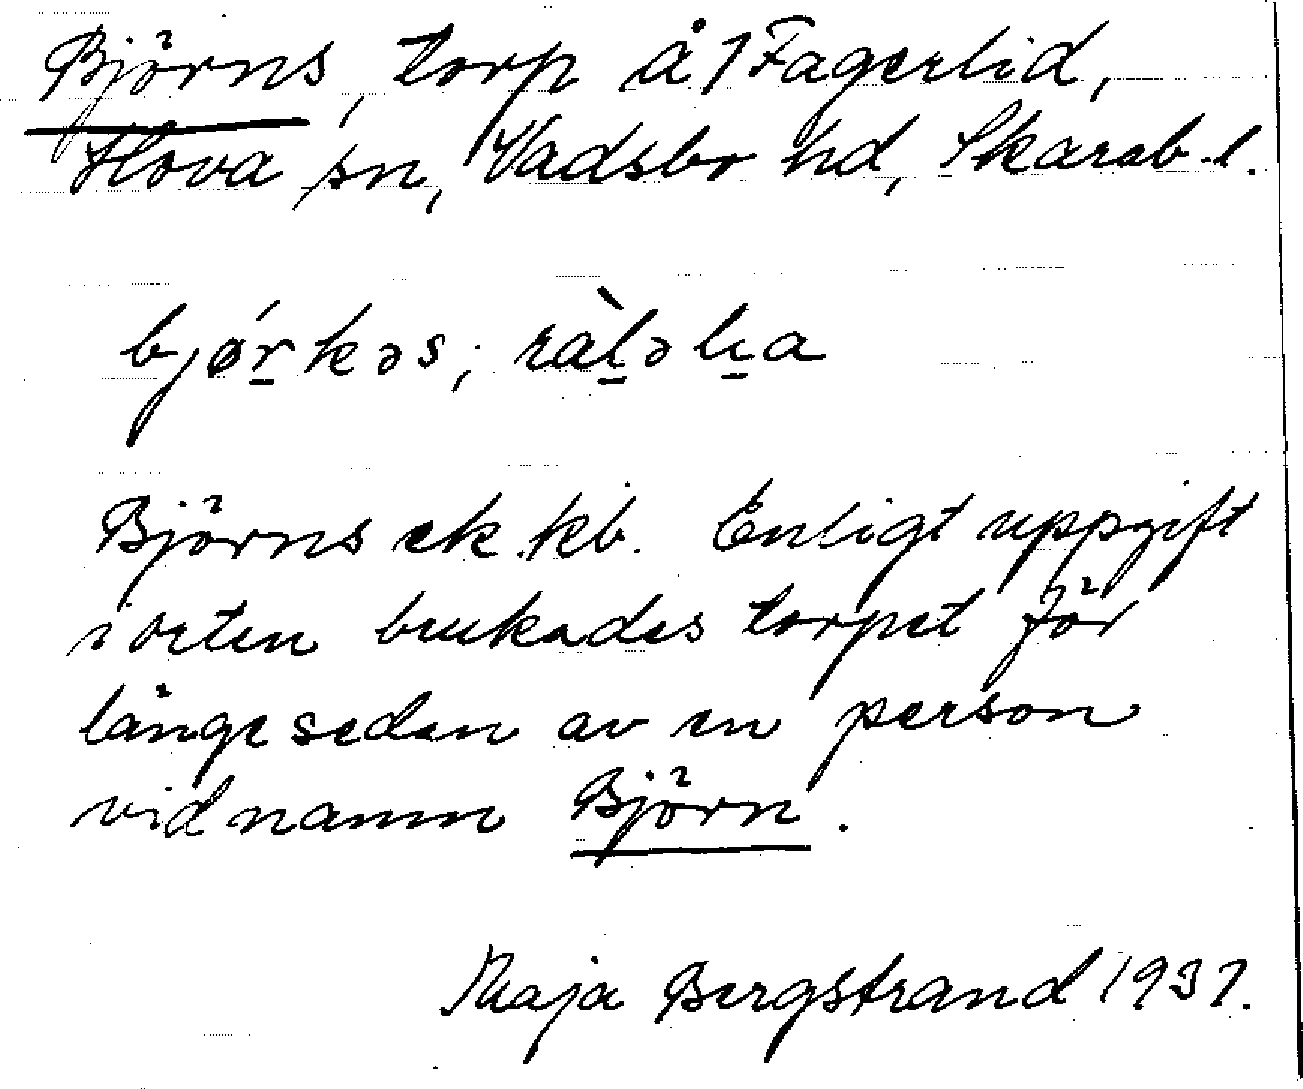 Björns, torp å 1 Fagerlid,
Hova sn, Vadsbo hd, Skarab. l.
Björns ek. kb. Enligt uppgift
i orten brukades torpet för
länge sedan av en person
vid namn Björn.
Maja Bergstrand 1937.